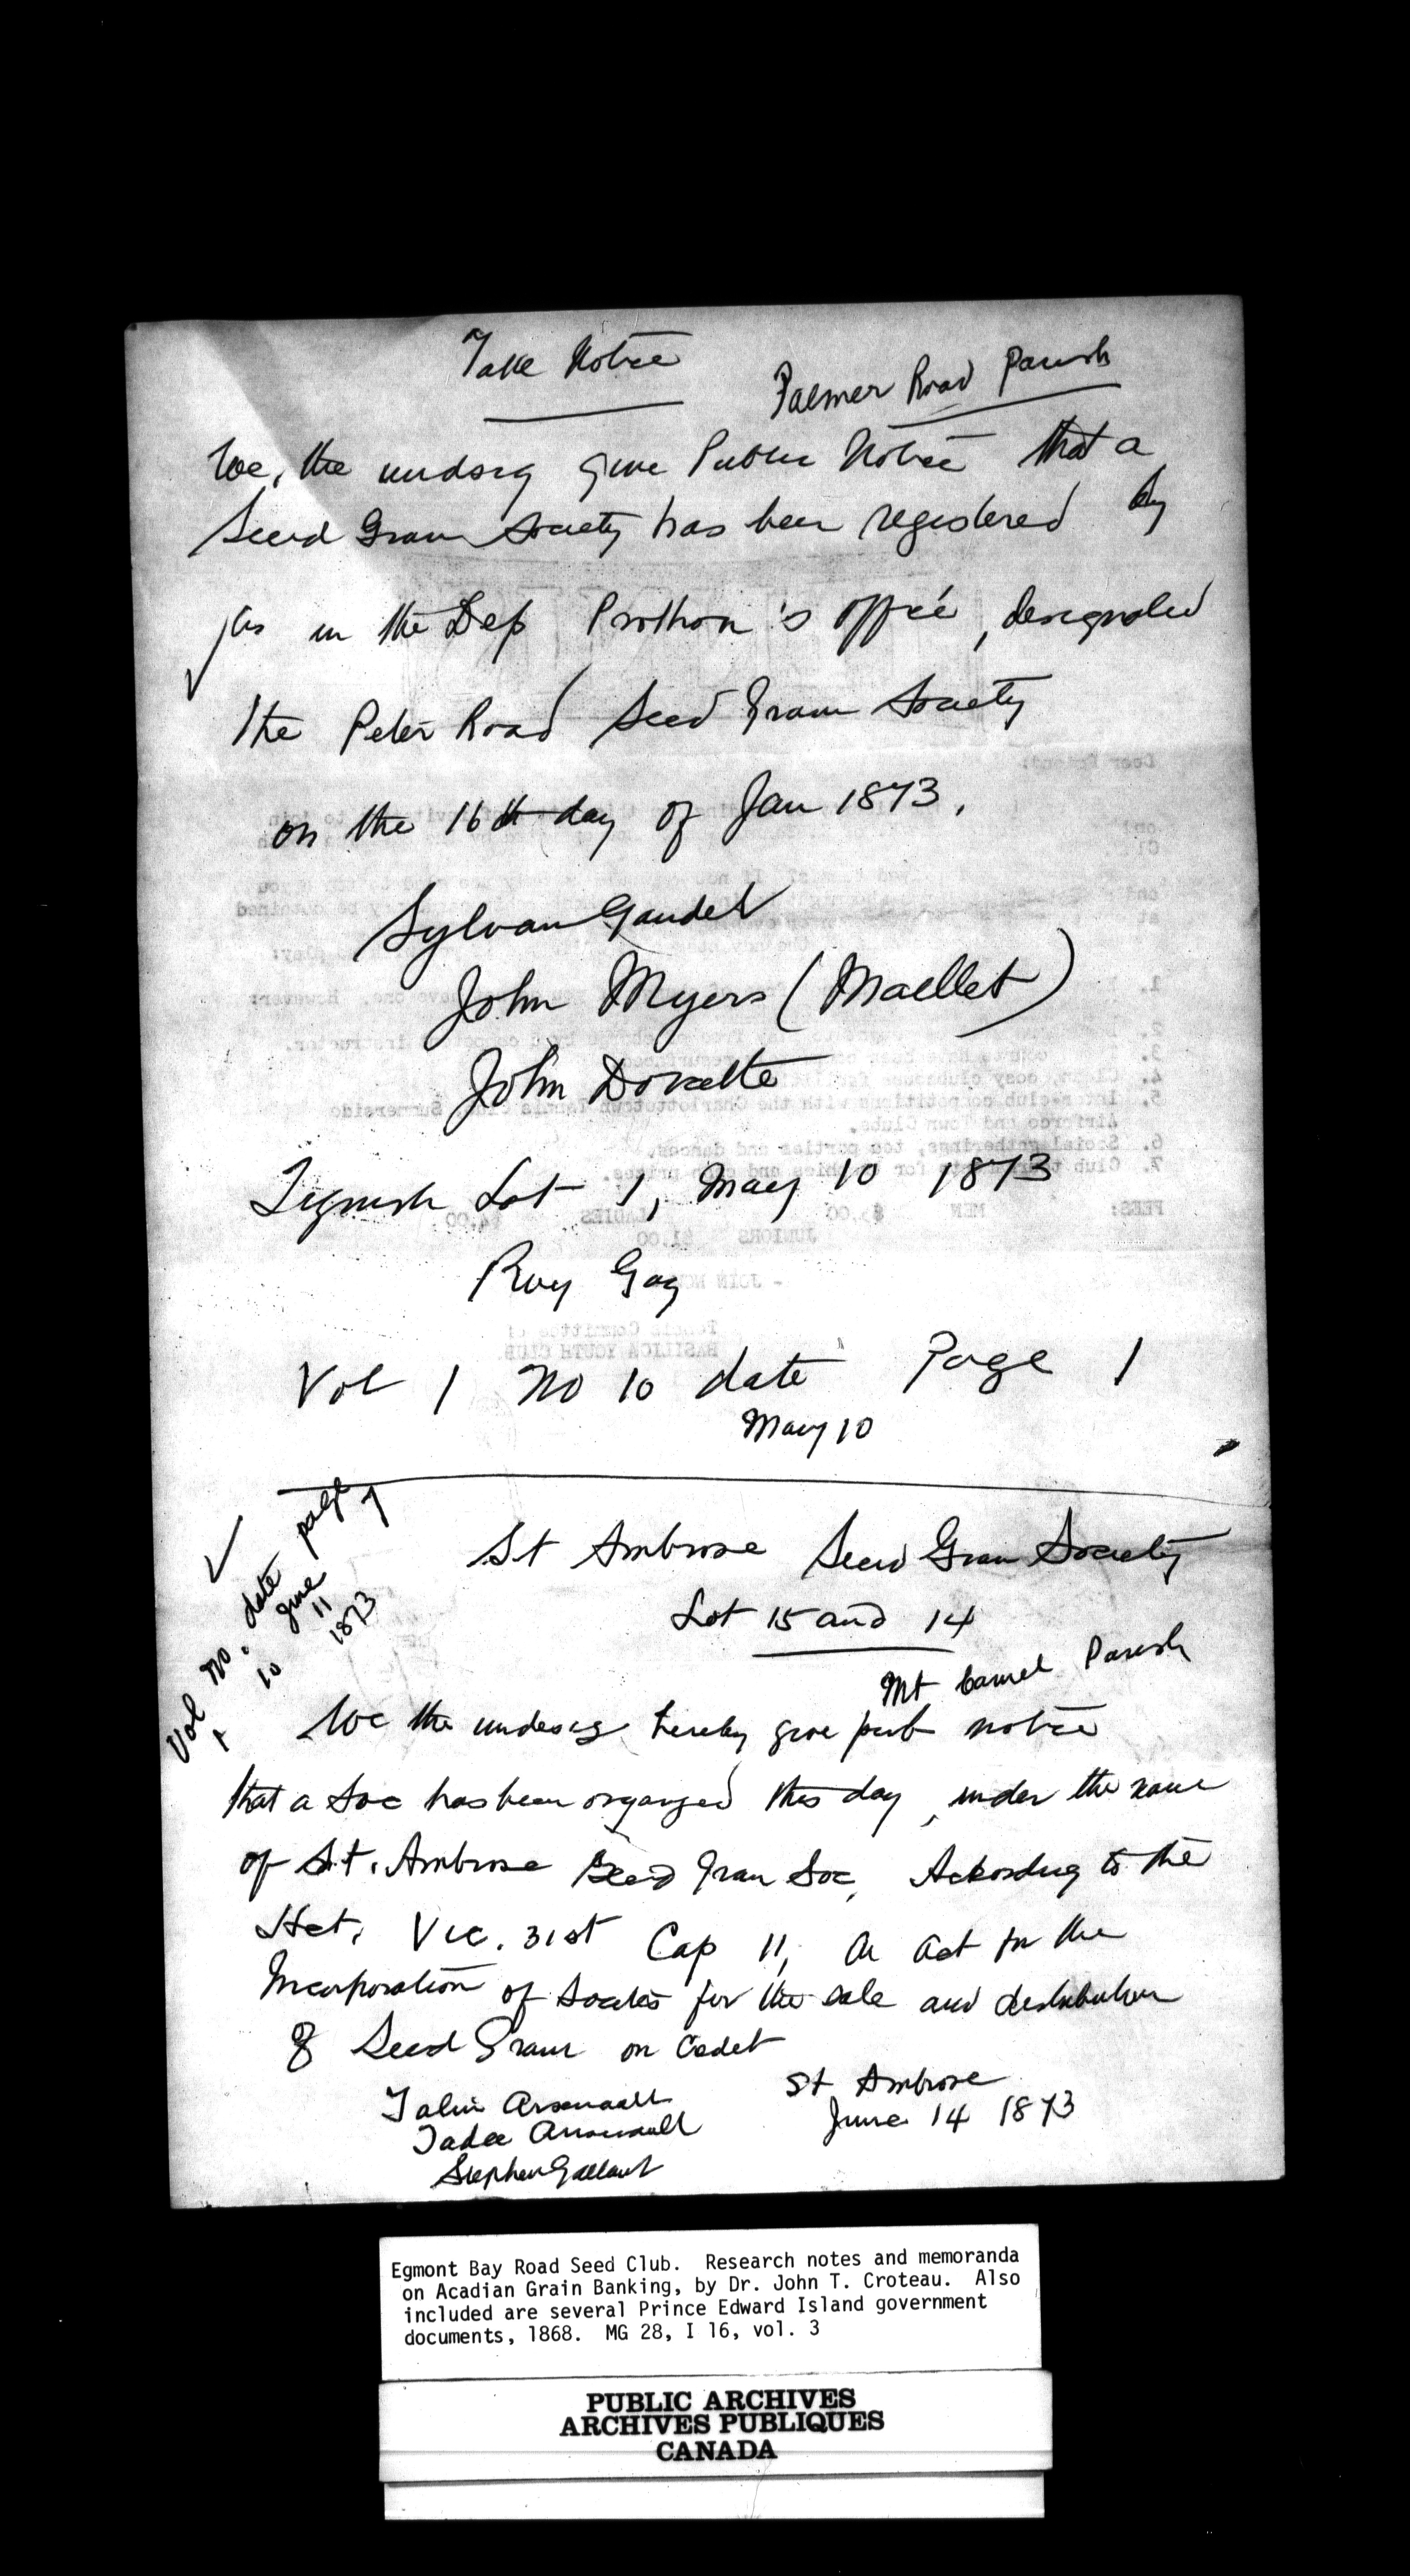 Take Notice
Palmer Road Parish
We, the undsig give Public Notice that a
Seed Grain Society has been registered by
us in the Dep Prothon's office, designated
The Peter Road Seed Grain Society
on the 16th day of Jan 1873.
Sylvan Gaudet
John Myers (Maellet)
John Doucette
Tignish Lot 1, May 10 1873
Vol 1 No 10 date Page 1
May 10
Vol No. date page
1 10 June 11 1873 1
St Ambrose Seed Grain Society
Lot 15 and 14
Mt Carmel Parish
We the undesig hereby give pub notice
that a Soc has been organized this day, under the name
of St. Ambrose Seed Grain Soc, According to the
Act, Vic. 31st Cap 11, An Act for the
Incorporation of Societies for the sale and distribution
of Seed Grain on Credit
St Ambrose
June 14 1873
Arsenault
Tadee Arsenault
Stephen Gallant
Egmont Bay Road Seed Club. Research notes and memoranda
on Acadian Grain Banking, by Dr. John T. Croteau. Also
included are several Prince Edward Island government
documents, 1868. MG 28, I 16, vol. 3
PUBLIC ARCHIVES
ARCHIVES PUBLIQUES
CANADA